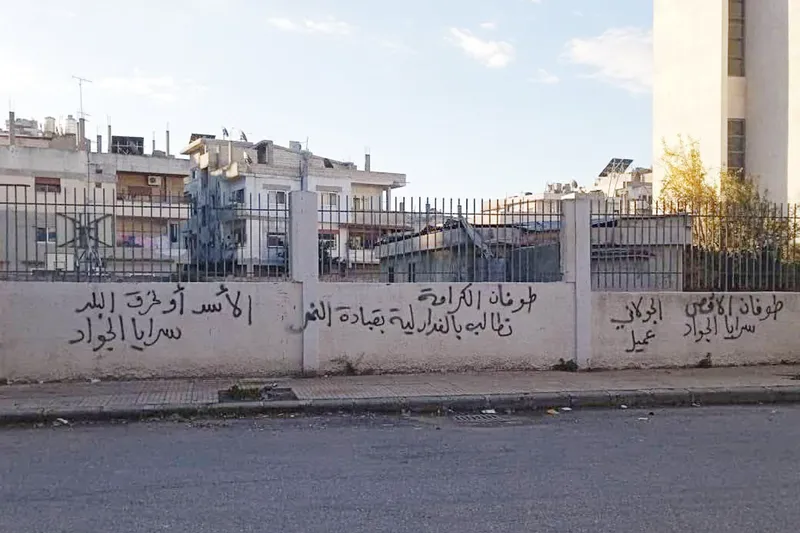 طوفان الاقصى
سرايا الجواد
الجولاني
عميل
طوفان الكرامة
نطالب بالفدارلية بقيادة النمر
الأسد أو نحرق البلد
سرايا الجواد